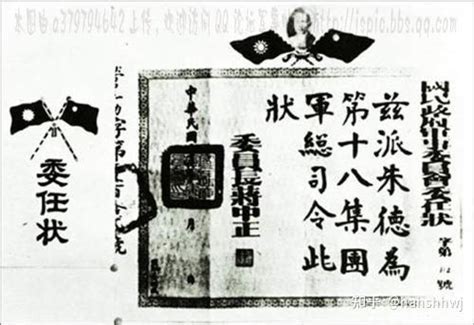 本图由 a379794642 上传，欢迎访问 QQ
http://ispic.bbs.qq.com
國民政府軍事委員會委任狀
字第
號
茲派朱德為
第十八集團
軍總司令此
狀
委員長蔣中正
中華民國
月
委任状
知乎 @hanshhwj